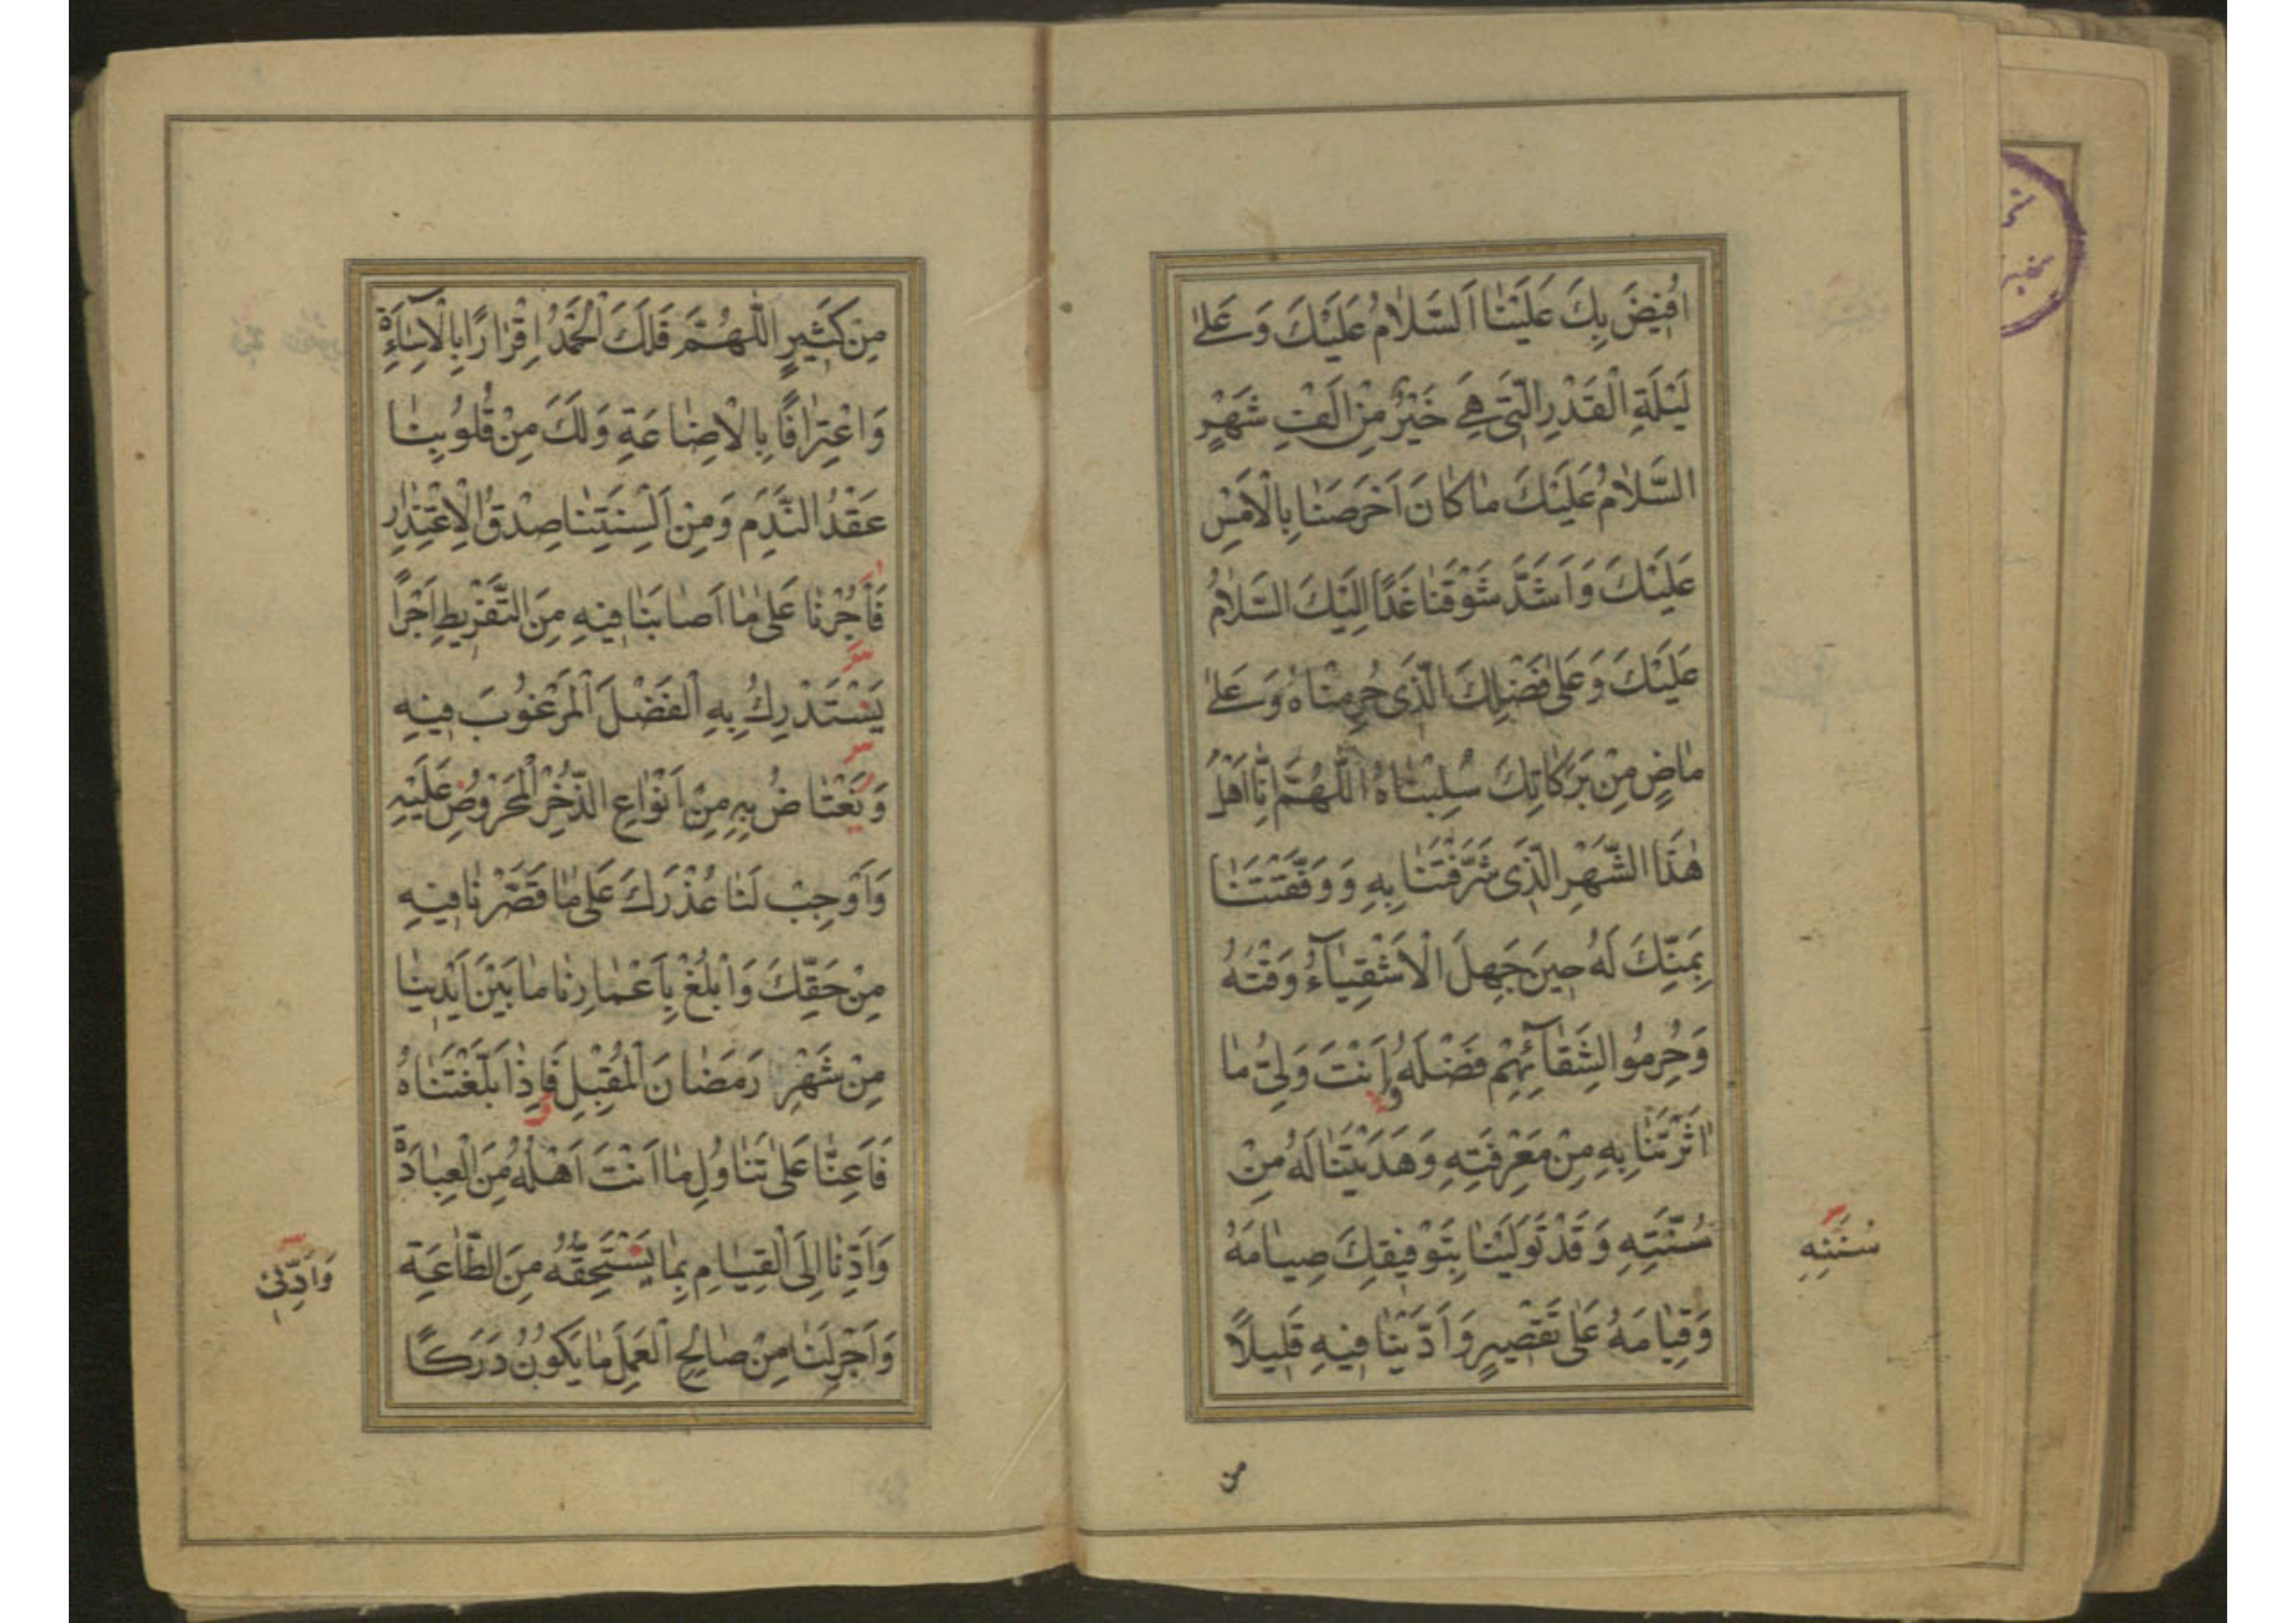 اُفيضَ بِكَ عَلَيْنا اَلسَّلامُ عَلَيْكَ وَعَلىٰ
لَيْلَةِ الْقَدْرِ الَّتى هِىَ خَيْرٌ مِنْ اَلْفِ شَهْرٍ
السَّلامُ عَلَيْكَ ما كانَ اَحْرَصَنا بِالْاَمْسِ
عَلَيْكَ وَاَشَدَّ شَوْقَنا غَدًا اِلَيْكَ السَّلامُ
عَلَيْكَ وَعَلىٰ فَضْلِكَ الَّذى حُرِمْناهُ وَعَلىٰ
ماضٍ مِنْ بَرَكاتِكَ سُلِبْناهُ اَللّٰهُمَّ اِنّا اَهْلُ
هٰذَا الشَّهْرِ الَّذى شَرَّفْتَنا بِهِ وَوَفَّقْتَنا
بِمَنِّكَ لَهُ حينَ جَهِلَ الْاَشْقِيآءُ وَقْتَهُ
وَحُرِمُوا لِشَقآئِهِمْ فَضْلَهُ وَاَنْتَ وَلِىُّ ما
اٰثَرْتَنا بِهِ مِنْ مَعْرِفَتِهِ وَهَدَيْتَنا لَهُ مِنْ
سُنَّتِهِ وَقَدْ تَوَلَّيْنا بِتَوْفيقِكَ صِيامَهُ
سُنَنِهِ
وَقِيامَهُ عَلىٰ تَقْصيرٍ وَاَدَّيْنا فيهِ قَليلًا
من
مِنْ كَثيرٍ اَللّٰهُمَّ فَلَكَ الْحَمْدُ اِقْرارًا بِالْاِسآءَةِ
وَاعْتِرافًا بِالْاِضاعَةِ وَلَكَ مِنْ قُلُوبِنا
عَقْدُ النَّدَمِ وَمِنْ اَلْسِنَتِنا صِدْقُ الْاِعْتِذارِ
فَأْجُرْنا عَلىٰ ما اَصابَنا فيهِ مِنَ التَّفْريطِ اَجْرًا
يَسْتَدْرِكُ بِهِ الْفَضْلَ الْمَرْغُوبَ فيهِ
وَنَعْتاضُ بِهِ مِنْ اَنْواعِ الذُّخْرِ الْمَحْرُوصِ عَلَيْهِ
وَاَوْجِبْ لَنا عُذْرَكَ عَلىٰ ما قَصَّرْنا فيهِ
مِنْ حَقِّكَ وَابْلُغْ بِاَعْمارِنا ما بَيْنَ اَيْدينا
مِنْ شَهْرِ رَمَضانَ الْمُقْبِلِ فَاِذا بَلَّغْتَناهُ
فَاَعِنّا عَلىٰ تَناوُلِ ما اَنْتَ اَهْلُهُ مِنَ الْعِبادَةِ
وَاَدِّنا اِلَى الْقِيامِ بِما يَسْتَحِقُّهُ مِنَ الطّاعَةِ
وَاَدِّنى
وَاَجْرِ لَنا مِنْ صالِحِ الْعَمَلِ ما يَكُونُ دَرَكًا